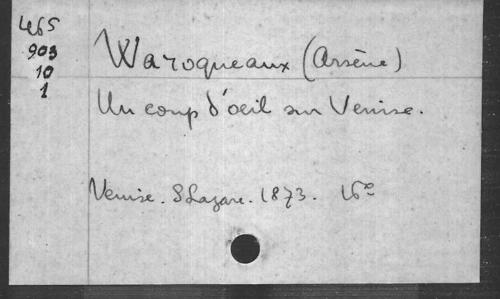 465
903
10
1
Waroqueaux (Arsène)
Un coup d'oeil sur Venise.
Venise. S Lazare. 1873. 16º